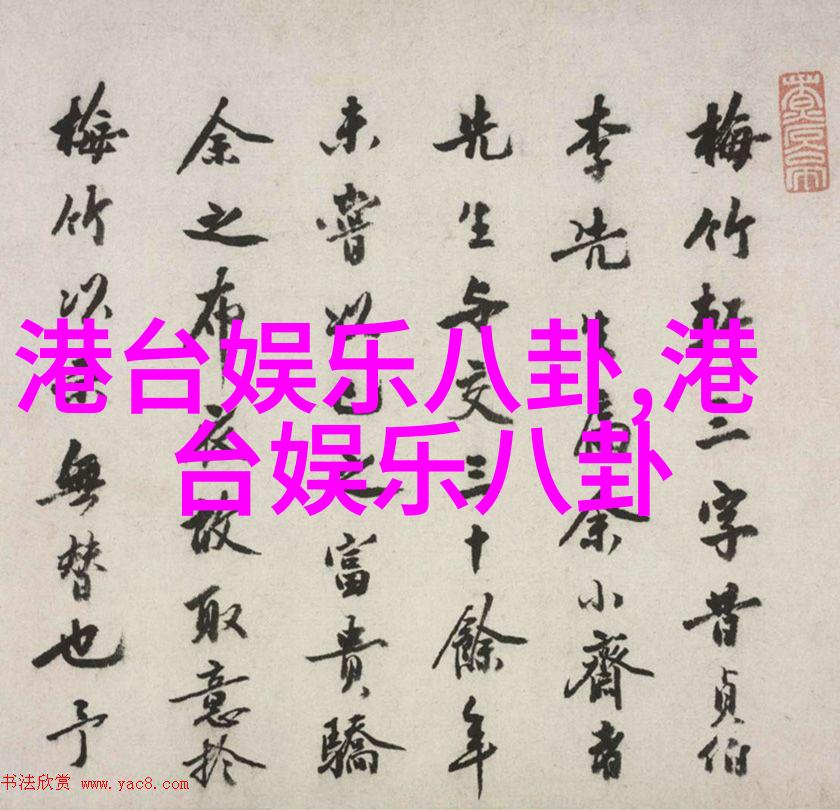 梅竹軒二字昔貞伯
李先生為余小齋書
先生与交三十餘年
未嘗以己之富貴驕
余之布衣故取意於
梅竹以示無替也予
港台娱乐八卦,港
台娱乐八卦
书法欣赏 www.yac8.com